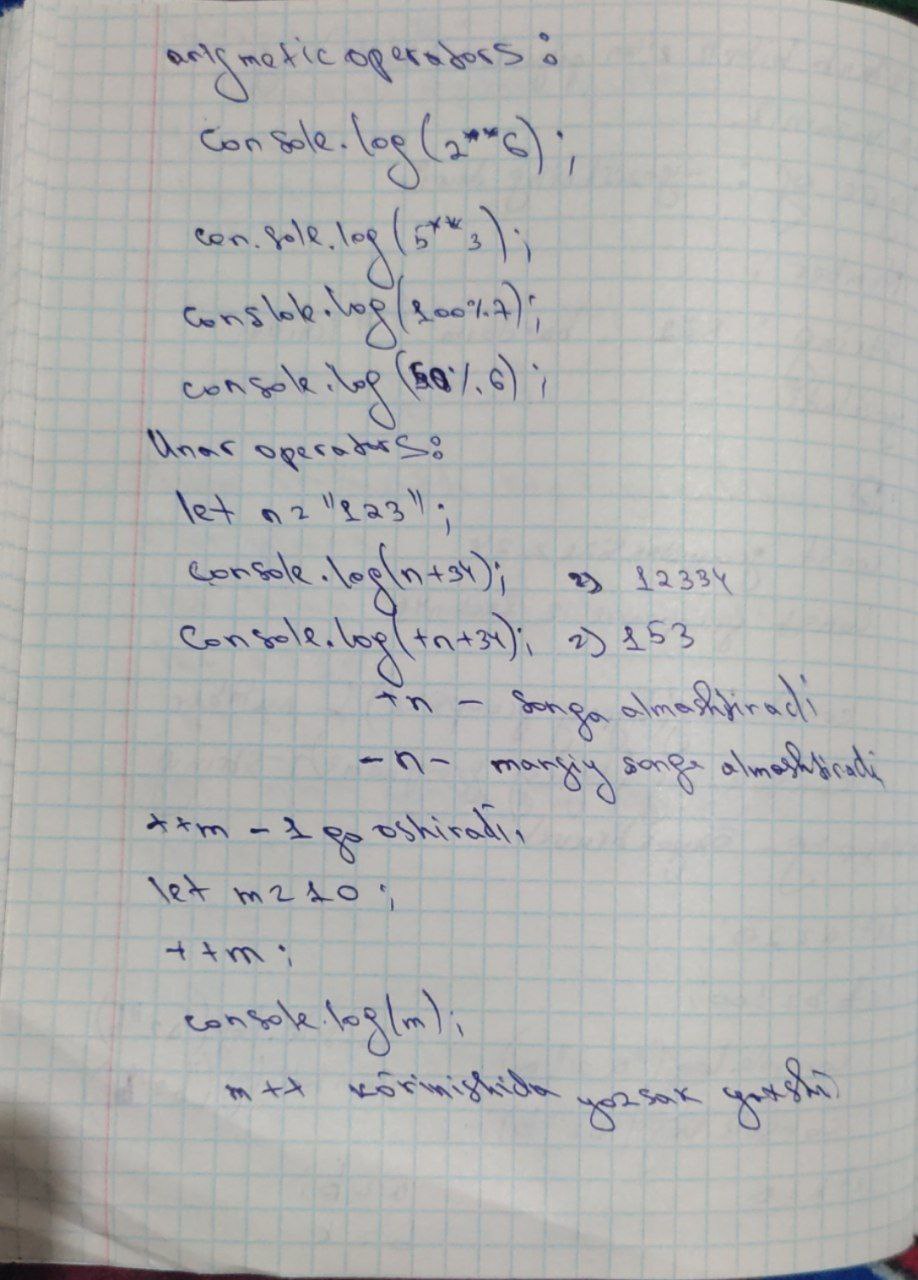 arigmetic operators:
console.log(2**6);
con.sole.log(5**3);
conslole.log(100%7);
console.log(50%6);
Unar operators:
let n = "123";
console.log(n+34); => 12334
console.log(+n+34); => 153
+n - songa almashtiradi
-n- manfiy songa almashtiradi
++m - 1 ga oshiradi,
let m = 10;
++m;
console.log(m);
m++ ko'rinishida yozsak yaxshi